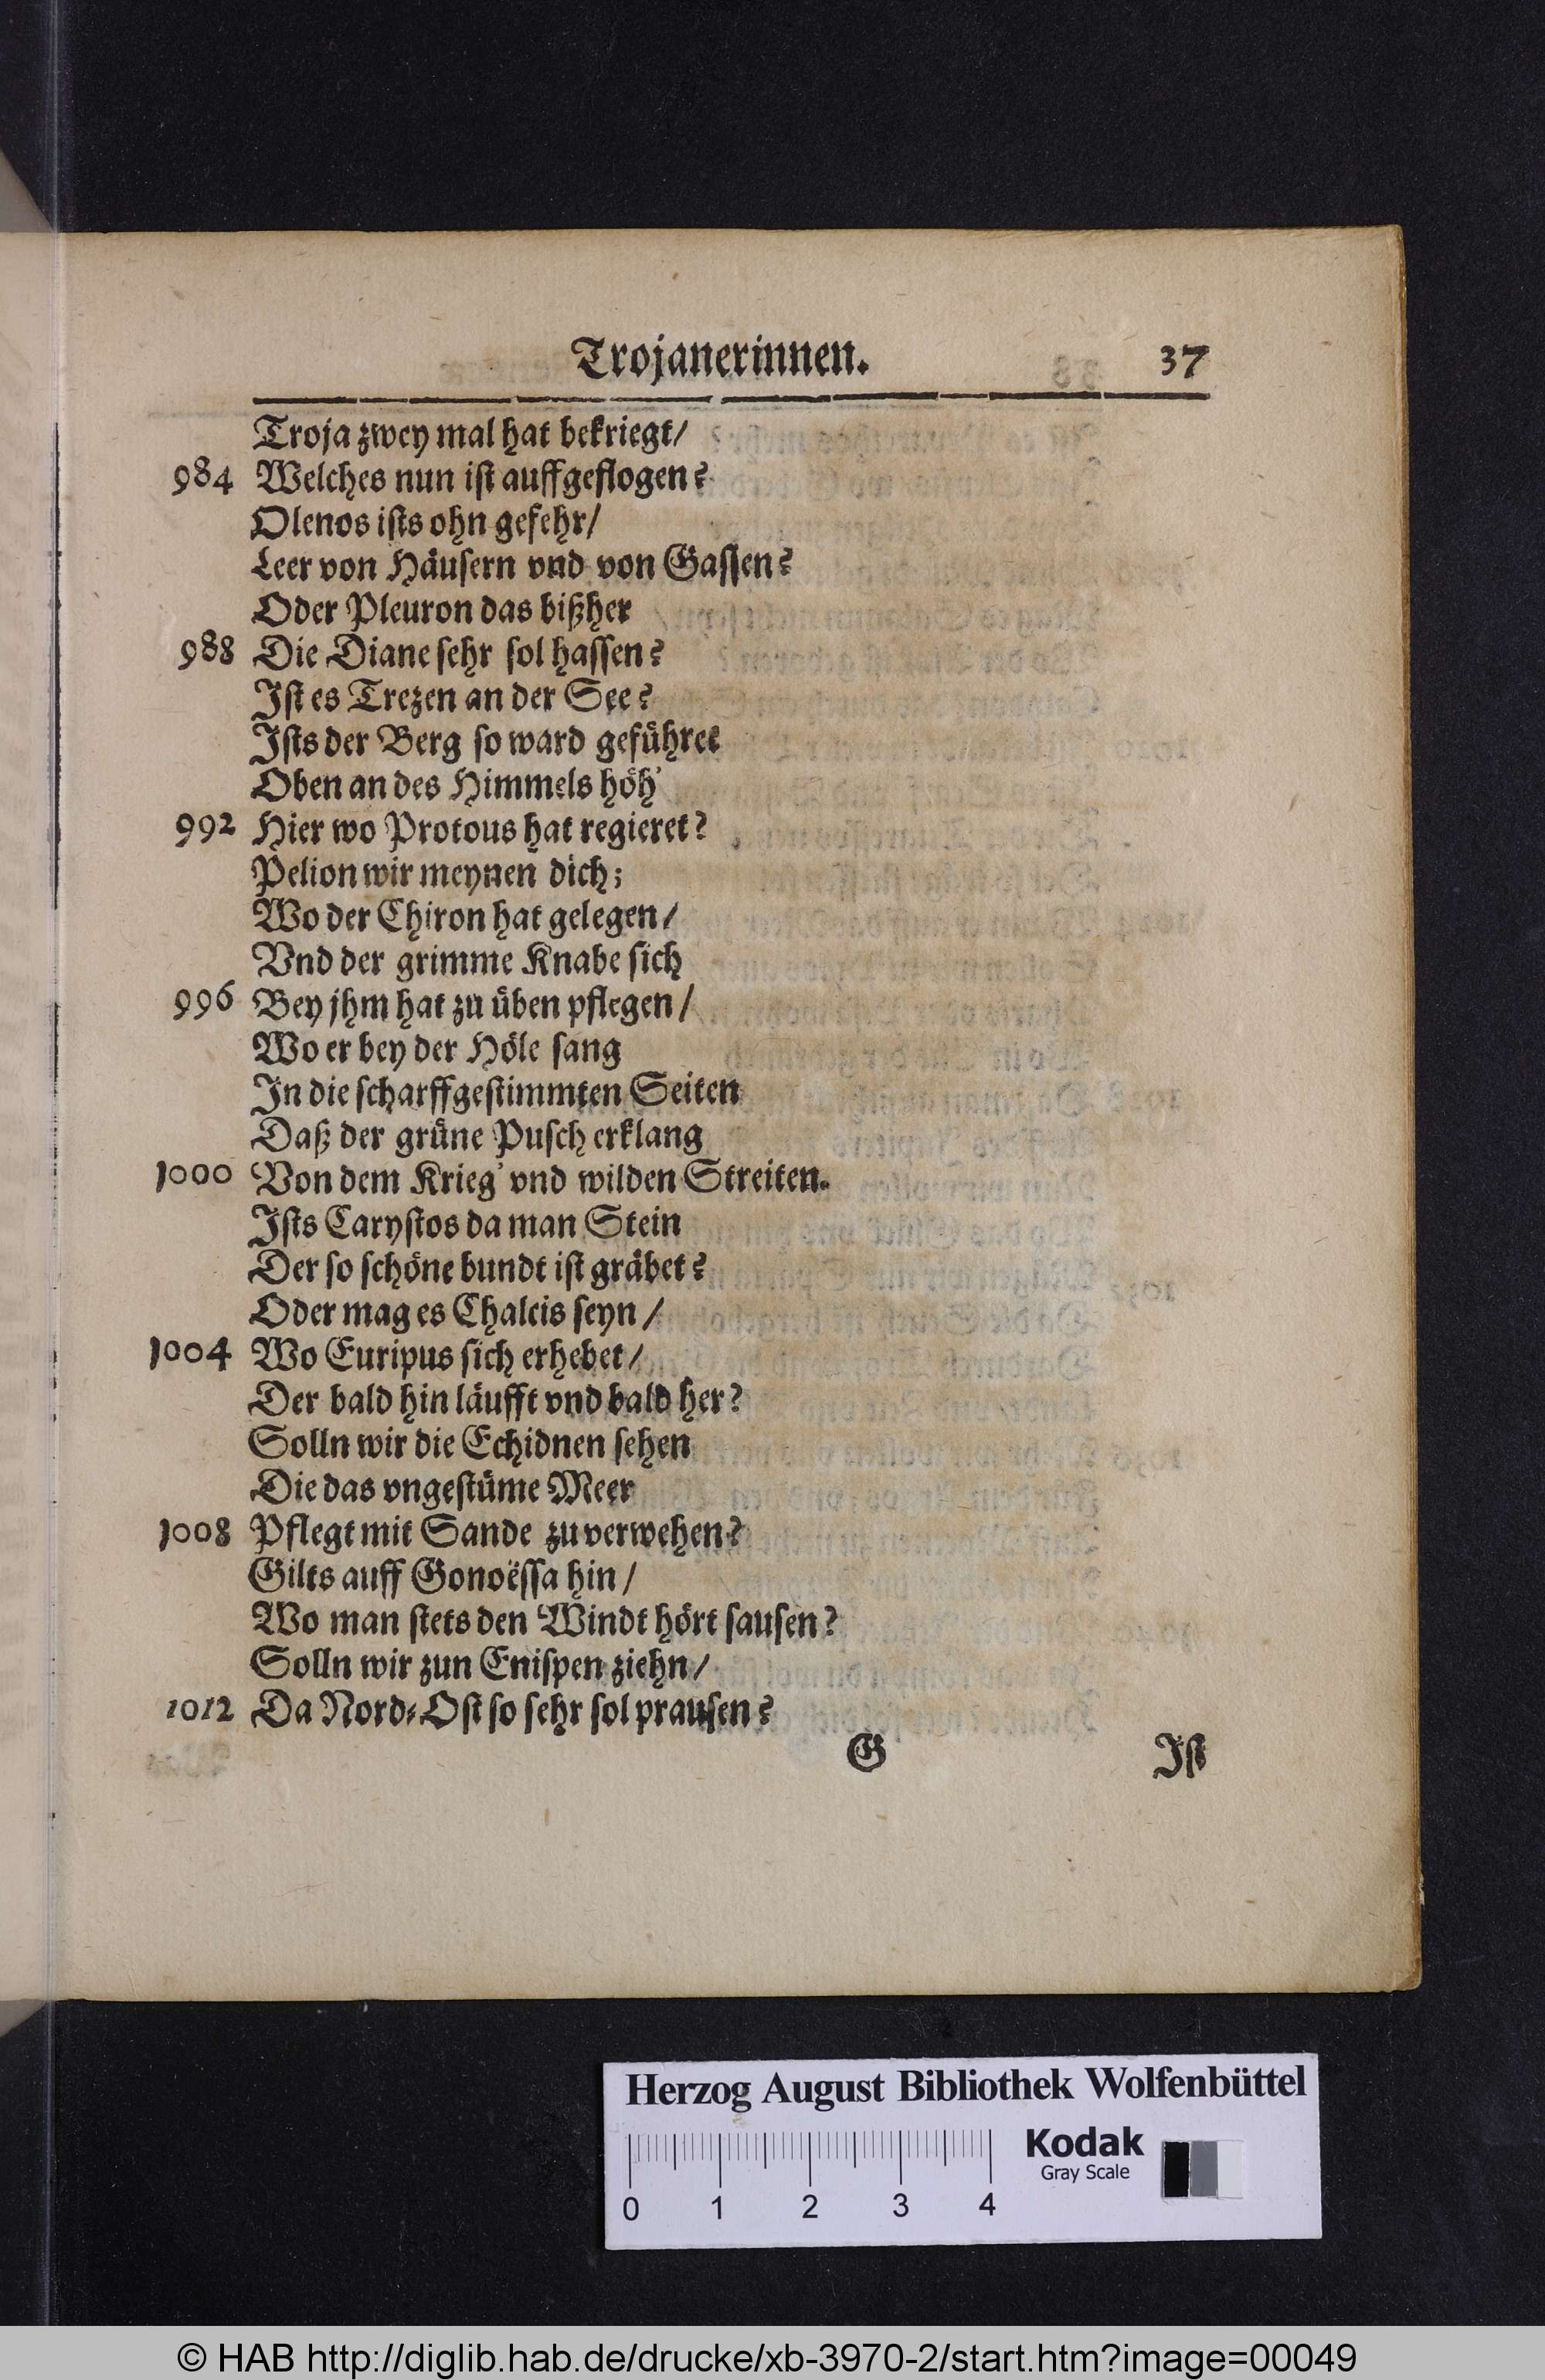 Trojanerinnen. 37
Troja zwey mal hat bekriegt/
984 Welches nun iſt auffgeflogen?
Olenos iſts ohn gefehr/
Leer von Häuſern vnd von Gaſſen?
Oder Pleuron das bißher
988 Die Diane ſehr ſol haſſen?
Iſt es Trezen an der See?
Iſts der Berg ſo ward geführet
Oben an des Himmels höh'
992 Hier wo Protous hat regieret?
Pelion wir meynen dich;
Wo der Chiron hat gelegen/
Vnd der grimme Knabe ſich
996 Bey jhm hat zu üben pflegen/
Wo er bey der Höle ſang
In die ſcharffgeſtimmten Seiten
Daß der grüne Puſch erklang
1000 Von dem Krieg' vnd wilden Streiten.
Iſts Caryſtos da man Stein
Der ſo ſchöne bundt iſt gräbet?
Oder mag es Chalcis ſeyn/
1004 Wo Euripus ſich erhebet/
Der bald hin läufft vnd bald her?
Solln wir die Echidnen ſehen
Die das vngeſtüme Meer
1008 Pflegt mit Sande zu verwehen?
Gilts auff Gonoëſſa hin/
Wo man ſtets den Windt hört ſauſen?
Solln wir zun Eniſpen ziehn/
1012 Da Nord-Oſt ſo ſehr ſol prauſen?
G Iſt
Herzog August Bibliothek Wolfenbüttel
Kodak
Gray Scale
0 1 2 3 4
© HAB http://diglib.hab.de/drucke/xb-3970-2/start.htm?image=00049